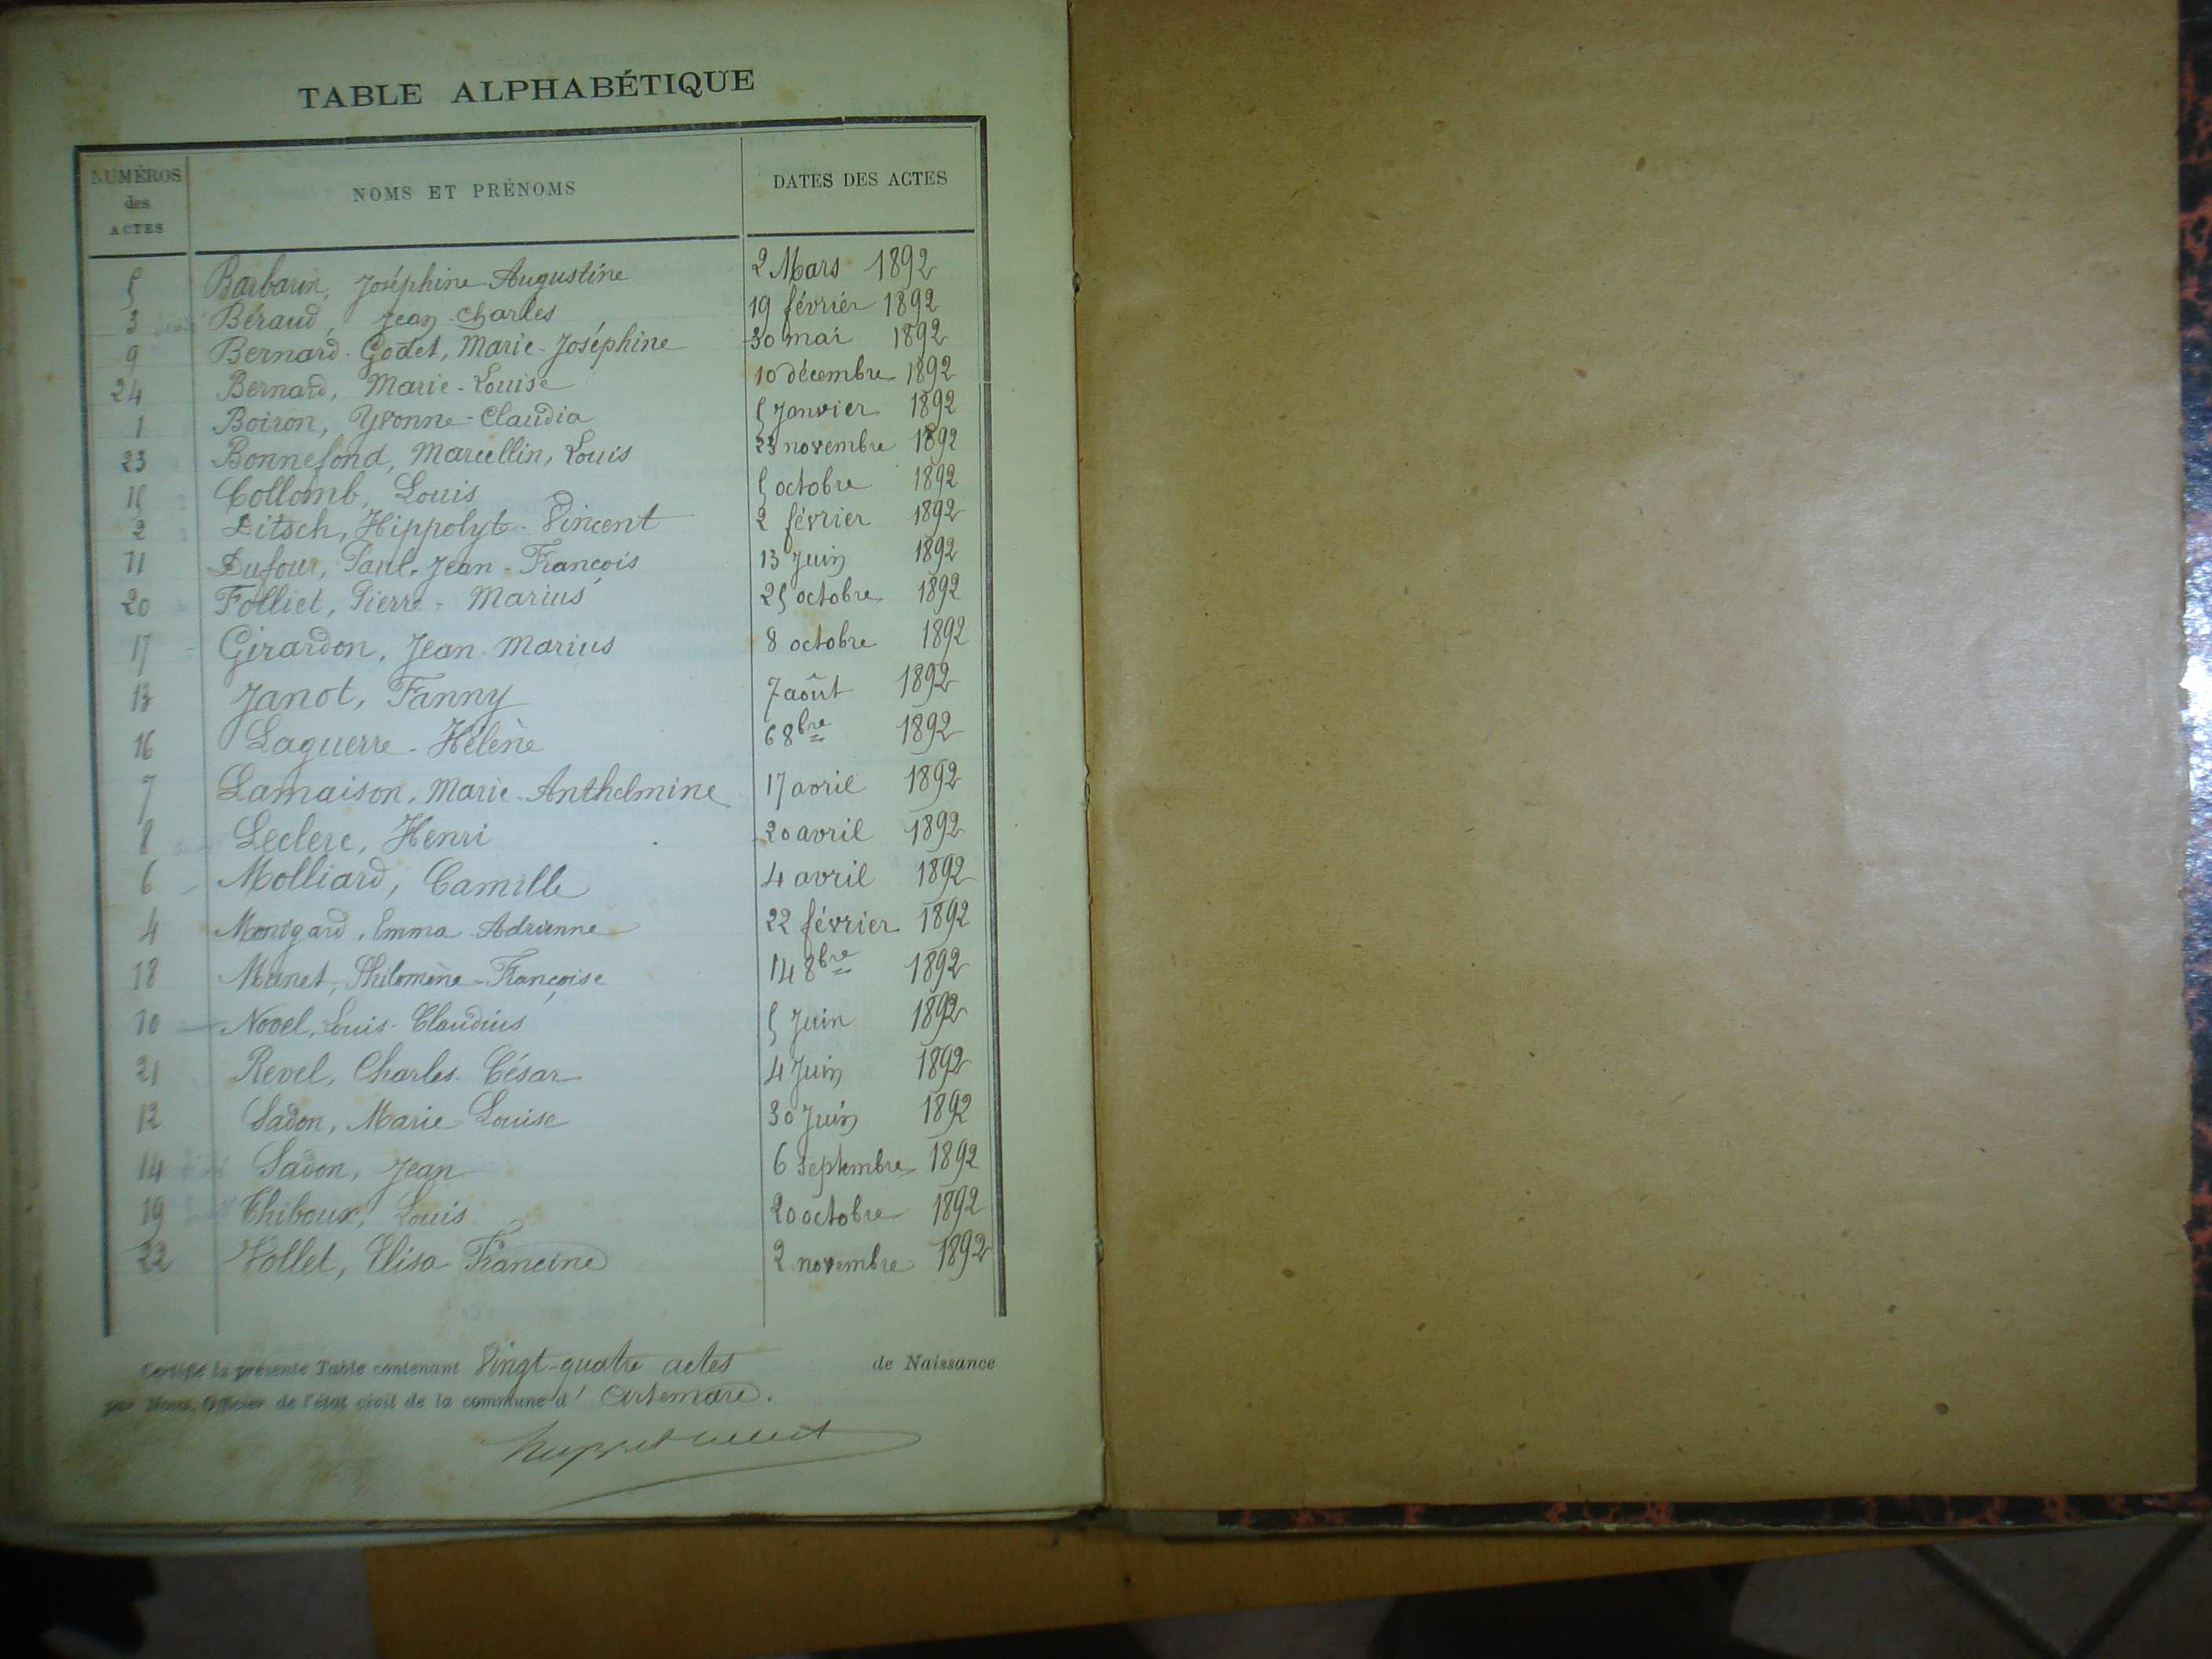 TABLE ALPHABÉTIQUE
NUMÉROS des ACTES NOMS ET PRÉNOMS DATES DES ACTES
5 Barbarin, Joséphine Augustine 2 Mars 1892
3 Béraud, Jean-Charles 19 février 1892
9 Bernard-Godet, Marie-Joséphine 30 mai 1892
24 Bernard, Marie-Louise 10 décembre 1892
1 Boiron, Yvonne-Claudia 5 Janvier 1892
23 Bonnefond, Marcellin, Louis 23 novembre 1892
15 Collomb, Louis 5 octobre 1892
2 Ditsch, Hippolyte-Vincent 2 février 1892
11 Dufour, Paul, Jean-François 13 Juin 1892
20 Folliet, Pierre-Marius 25 octobre 1892
17 Girardon, Jean-Marius 8 octobre 1892
13 Janot, Fanny 7 août 1892
16 Laguerre-Hélène 6 8bre 1892
7 Lamaison, Marie-Anthelmine 17 avril 1892
8 Leclerc, Henri 20 avril 1892
6 Molliard, Camille 4 avril 1892
4 Emma Adrienne 22 février 1892
18 Munet, Philomène-Françoise 14 8bre 1892
10 Novel, Louis-Claudius 5 Juin 1892
21 Revel, Charles-César 4 Juin 1892
12 Sadon, Marie-Louise 30 Juin 1892
14 Sadon, Jean 6 Septembre 1892
19 Thiboux, Louis 20 octobre 1892
22 Vollet, Elisa Francine 2 novembre 1892
Certifié la présente Table contenant Vingt-quatre actes de Naissance
par Nous, Officier de l'état civil de la commune d' Artemare.